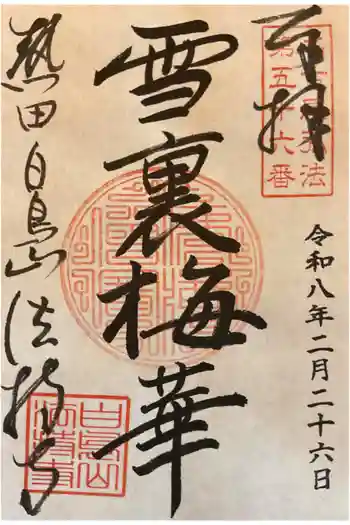 百拝
第五十六番
令和八年二月二十六日
雪裏梅華
熱田 白鳥山 法持寺
白鳥山
法持寺